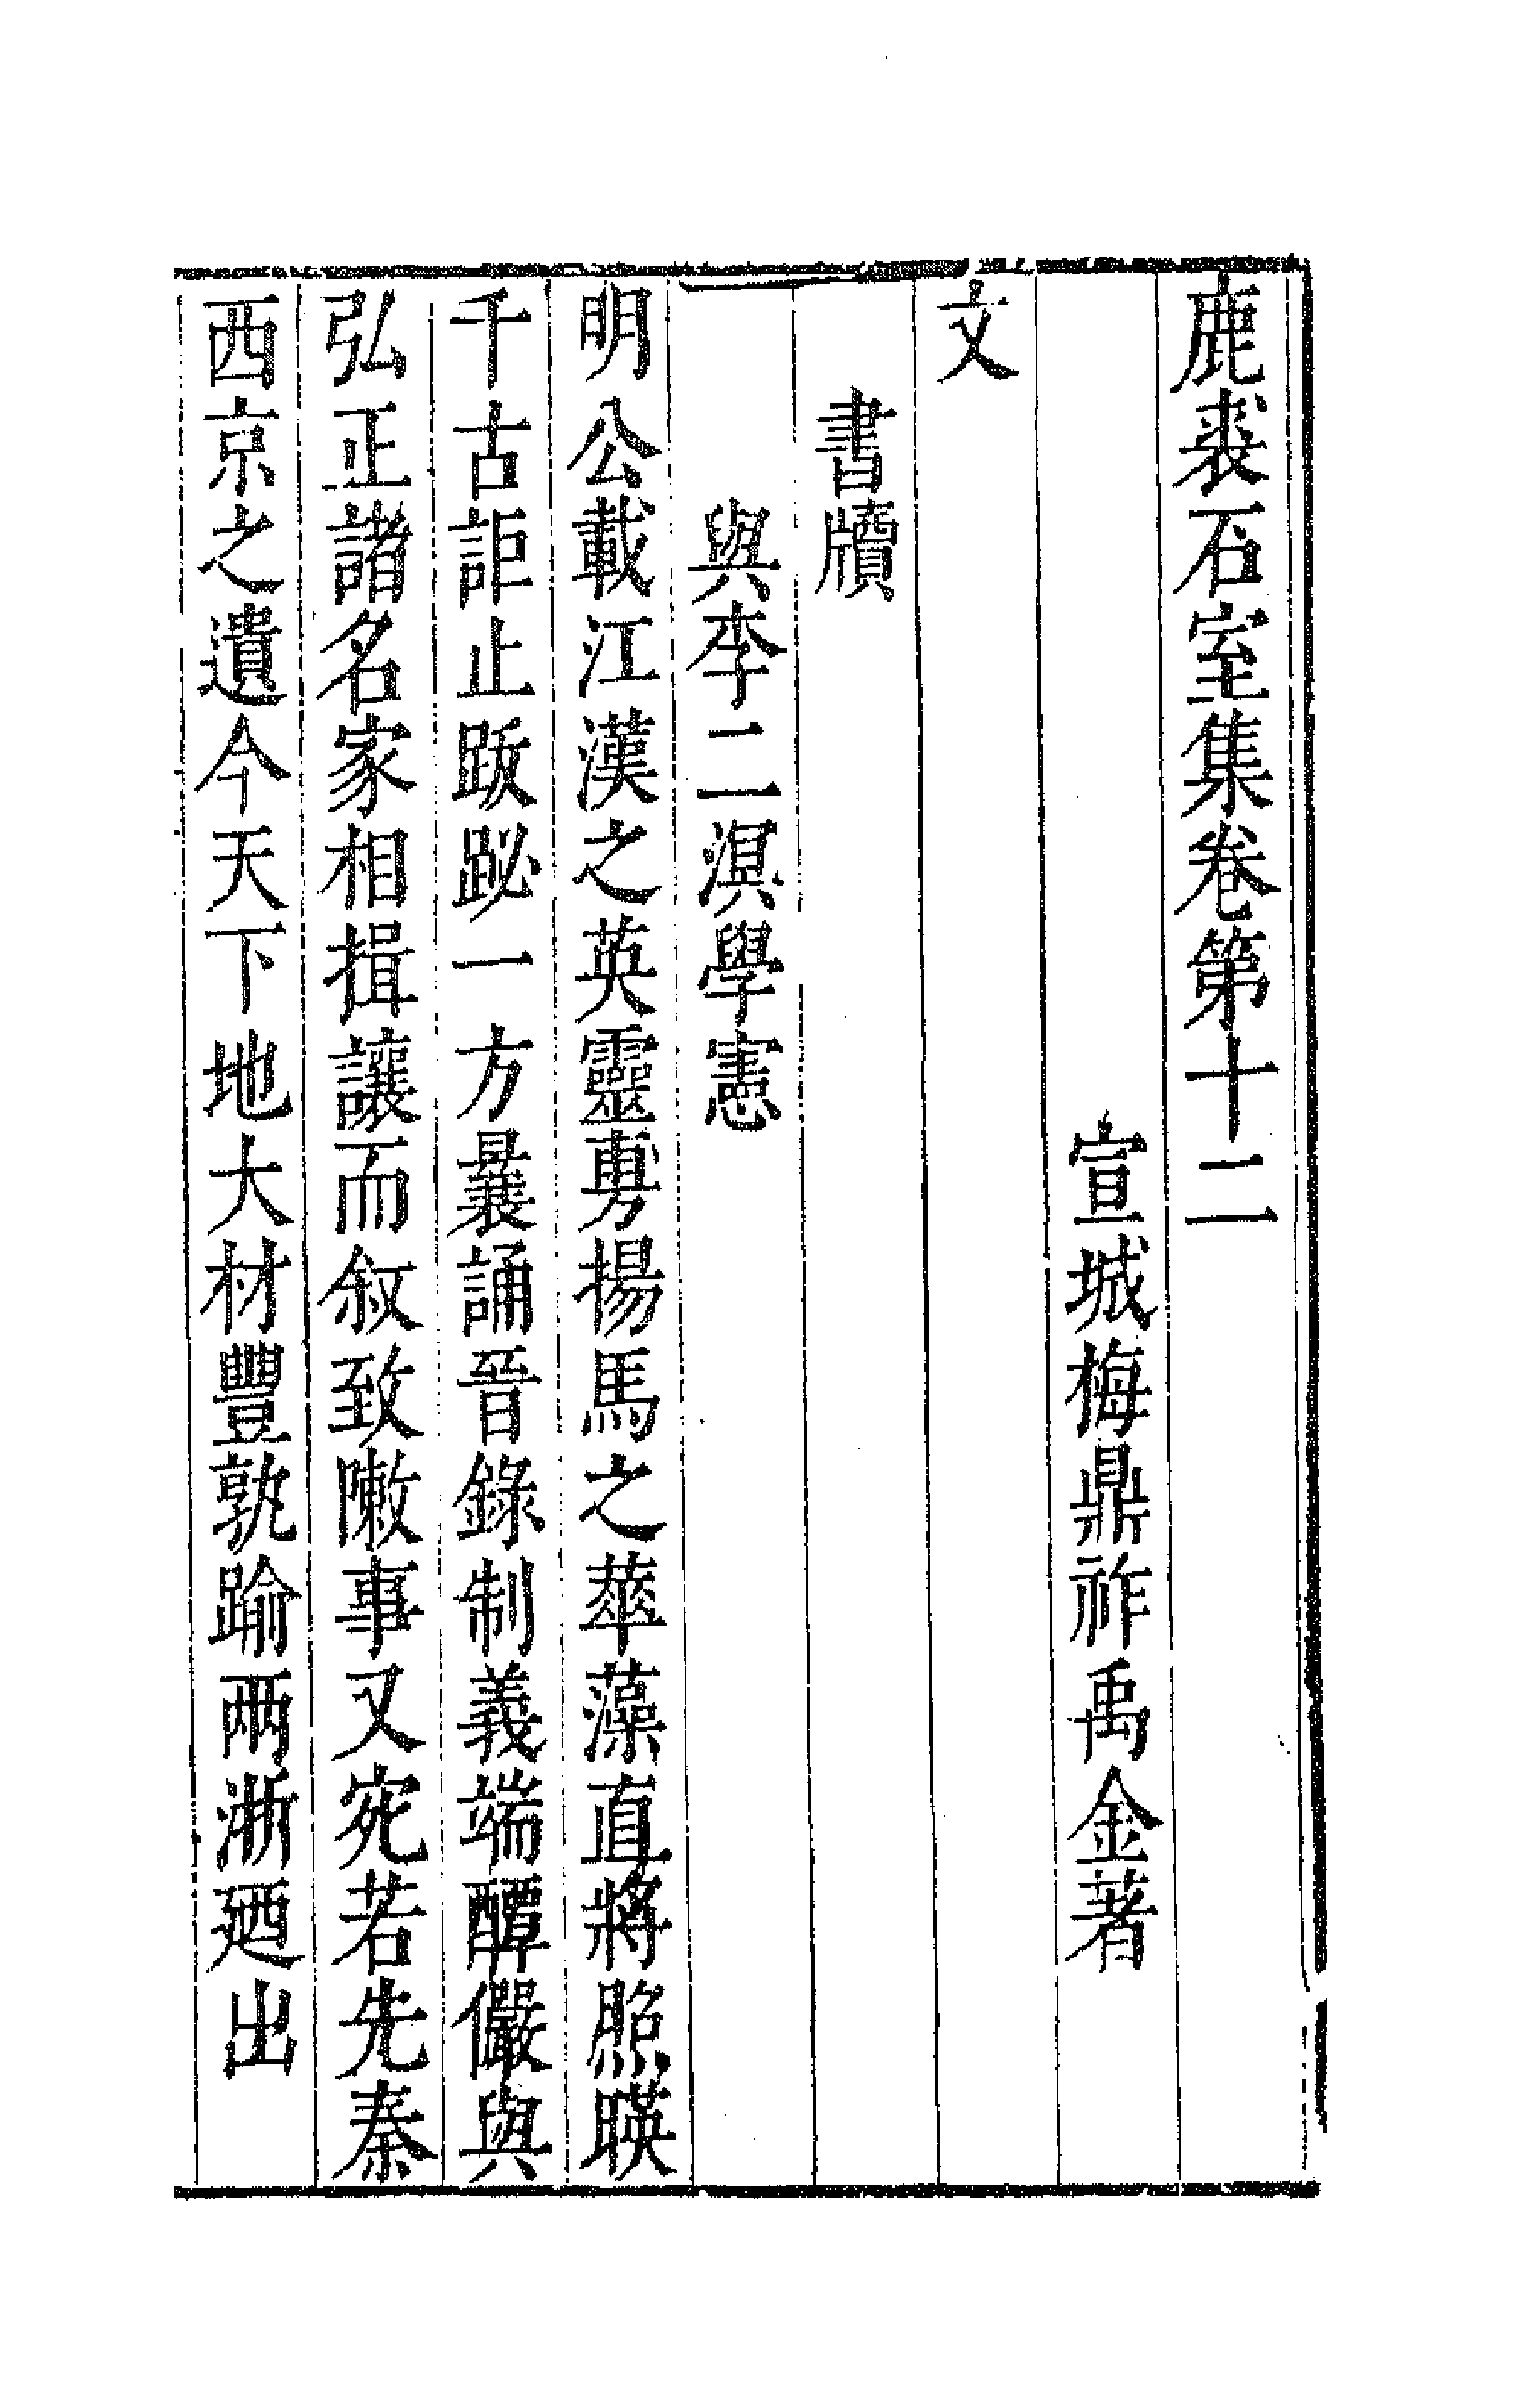 鹿裘石室集卷第十二
宣城梅鼎祚禹金著
文
書牘
與李二溟學憲
明公載江漢之英靈旉揚馬之華藻直將照暎
千古詎止跋䟆一方曩誦晉錄制義端醰儼與
弘正諸名家相揖讓而叙致敶事又宛若先秦
西京之遺今天下地大材豐孰踰兩浙廼出